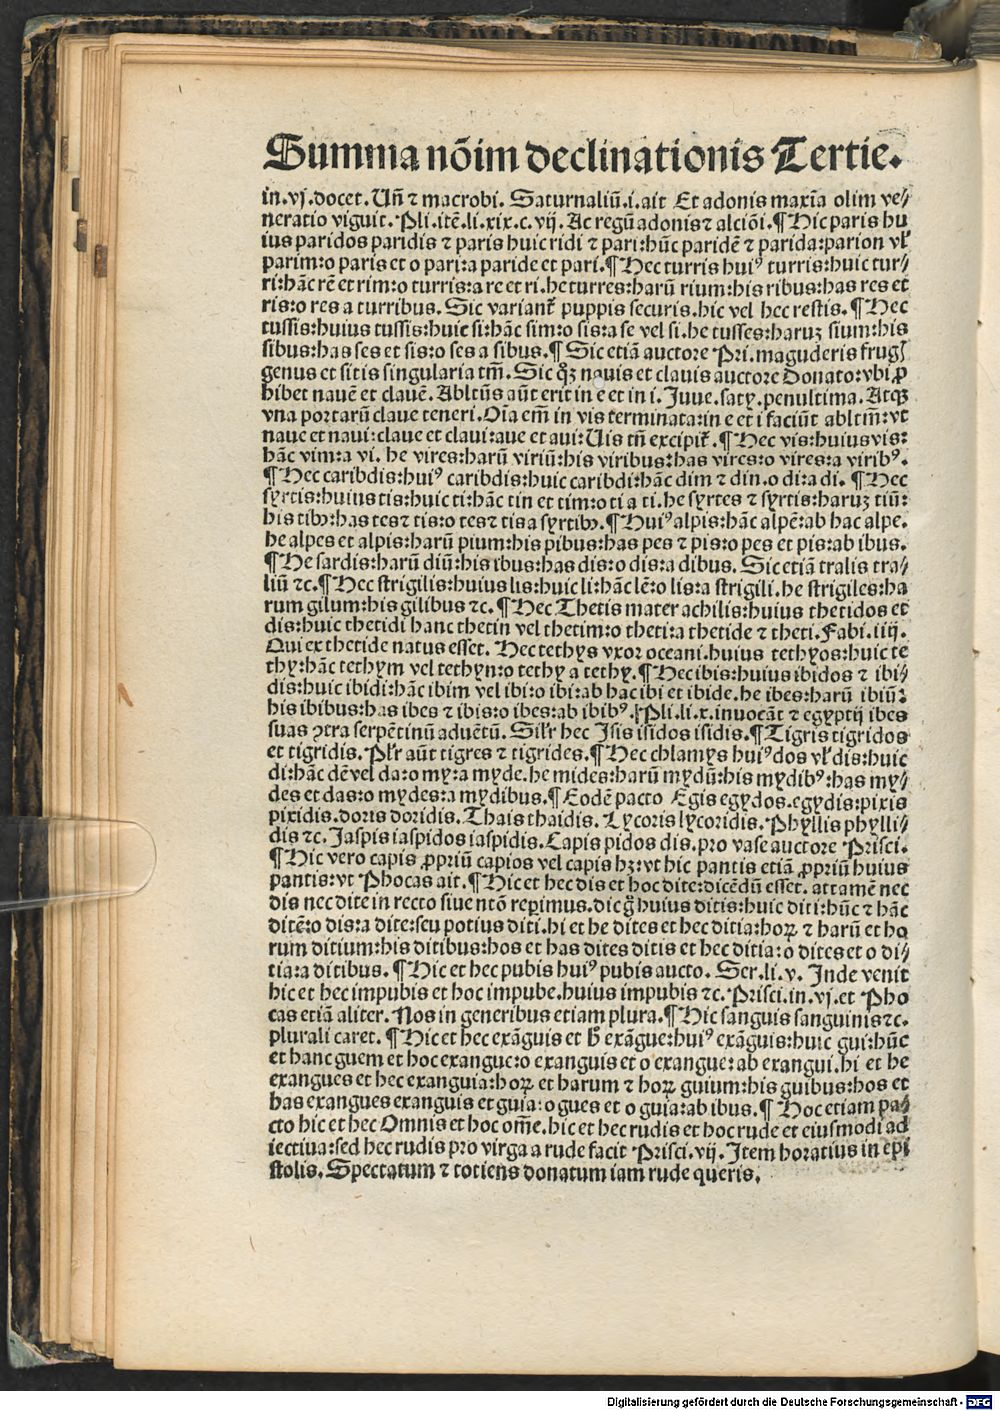 Summa nōim declinationis Tertie.
in.vj.docet. Un̄ ⁊ macrobi. Saturnaliū.i.ait Et adonis maxīa olim ve⸗
neratio viguit. Pli.itē.li.xix.c.vij. Ac regū adonis⁊ alciōi.¶Hic paris hu
ius paridos paridis ⁊ paris huic ridi ⁊ pari:hūc paridē ⁊ parida:parion vł
parim:o paris et o pari:a paride et pari.¶Hec turris huiꝰ turris:huic tur⸗
ri:hāc rē et rim:o turris:a re et ri.he turres:harū rium:his ribus:has res et
ris:o res a turribus. Sic variant᷑ puppis securis.hic vel hec restis.¶Hec
tussis:huius tussis:huic si:hāc sim:o sis:a se vel si.he tusses:haruꝫ sium:his
sibus:has ses et sis:o ses a sibus.¶ Sic etiā auctore Pri.maguderis frugꝭ
genus et sitis singularia tm̄. Sic qꝫ nauis et clauis auctore Donato:vbi ꝓ
hibet nauē et clauē. Abltūs aūt erit in e et in i. Juue.saty.penultima. Atqꝫ
vna portarū claue teneri. Oīa em̄ in vis terminata:in e et i faciūt abltm̄:vt
naue et naui:claue et claui:aue et aui:Uis tn̄ excipit᷑.¶Hec vis:huius vis:
hāc vim:a vi. he vires:harū viriū:his viribus:has vires:o vires:a viribꝰ.
¶Hec caribdis:huiꝰ caribdis:huic caribdi:hāc dim ⁊ din.o di:a di. ¶Hec
syrtis:huius tis:huic ti:hāc tin et tim:o ti a ti.he syrtes ⁊ syrtis:haruꝫ tiū:
his tibꝫ:has tes⁊ tis:o tes⁊ tis a syrtibꝫ.¶Huiꝰ alpis:hāc alpē:ab hac alpe.
he alpes et alpis:harū pium:his pibus:has pes ⁊ pis:o pes et pis:ab ibus.
¶He sardis:harū diū:his ibus:has dis:o dis:a dibus. Sic etiā tralis tra⸗
liū ⁊c.¶Hec strigilis:huius lis:huic li:hāc lē:o lis:a strigili.he strigiles:ha
rum gilum:his gilibus ⁊c.¶Hec Thetis mater achilis:huius thetidos et
dis:huic thetidi hanc thetin vel thetim:o theti:a thetide ⁊ theti.Fabi.iiij.
Qui ex thetide natus esset. Hec tethys vxor oceani.huius tethyos:huic te
thy:hāc tethym vel tethyn:o tethy a tethy.¶Hec ibis:huius ibidos ⁊ ibi⸗
dis:huic ibidi:hāc ibim vel ibi:o ibi:ab hac ibi et ibide.he ibes:harū ibiū:
his ibibus:has ibes ⁊ ibis:o ibes:ab ibibꝰ. Pli.li.x.inuocāt ⁊ egyptij ibes
suas ꝯtra serpētinū aduētū. Silr̄ hec Isis isidos isidis.¶Tigris tigridos
et tigridis. Plr̄ aūt tigres ⁊ tigrides.¶Hec chlamys huiꝰdos vł dis:huic
di:hāc dē vel da:o my:a myde.he mides:harū mydū:his mydibꝰ:has my⸗
des et das:o mydes:a mydibus.¶Eodē pacto Egis egydos.egydis:pixis
pixidis.doris doridis.Thais thaidis. Lycoris lycoridis.Phyllis phylli⸗
dis ⁊c. Jaspis iaspidos iaspidis.Capis pidos dis.pro vase auctore Prisci.
¶Hic vero capis ꝓpriū capios vel capis hꝫ:vt hic pantis etiā ꝓpriū huius
pantis:vt Phocas ait.¶Hic et hec dis et hoc dite:dicēdū esset. attamē nec
dis nec dite in recto siue ntō reꝑimus.dic g̊ huius ditis:huic diti:hūc ⁊ hāc
ditē:o dis:a dite:seu potius diti.hi et he dites et hec ditia:hoꝝ ⁊ harū et ho
rum ditium:his ditibus:hos et has dites ditis et hec ditia:o dites et o di⸗
tia:a ditibus. ¶Hic et hec pubis huiꝰ pubis aucto. Ser.li.v. Inde venit
hic et hec impubis et hoc impube.huius impubis ⁊c. Prisci.in.vj.et Pho
cas etiā aliter. Nos in generibus etiam plura.¶Hic sanguis sanguinis⁊c.
plurali caret. ¶Hic et hec exāguis et ħ exāgue:huiꝰ exāguis:huic gui:hūc
et hanc guem et hoc exangue:o exanguis et o exangue:ab exangui.hi et he
exangues et hec exanguia:hoꝝ et harum ⁊ hoꝝ guium:his guibus:hos et
has exangues exanguis et guia:o gues et o guia:ab ibus.¶ Hoc etiam pa⸗
cto hic et hec Omnis et hoc om̄e.hic et hec rudis et hoc rude et eiusmodi ad
iectiua:sed hec rudis pro virga a rude facit Prisci.vij. Item horatius in epi
stolis. Spectatum ⁊ totiens donatum iam rude queris.
Digitalisierung gefördert durch die Deutsche Forschungsgemeinschaft - DFG